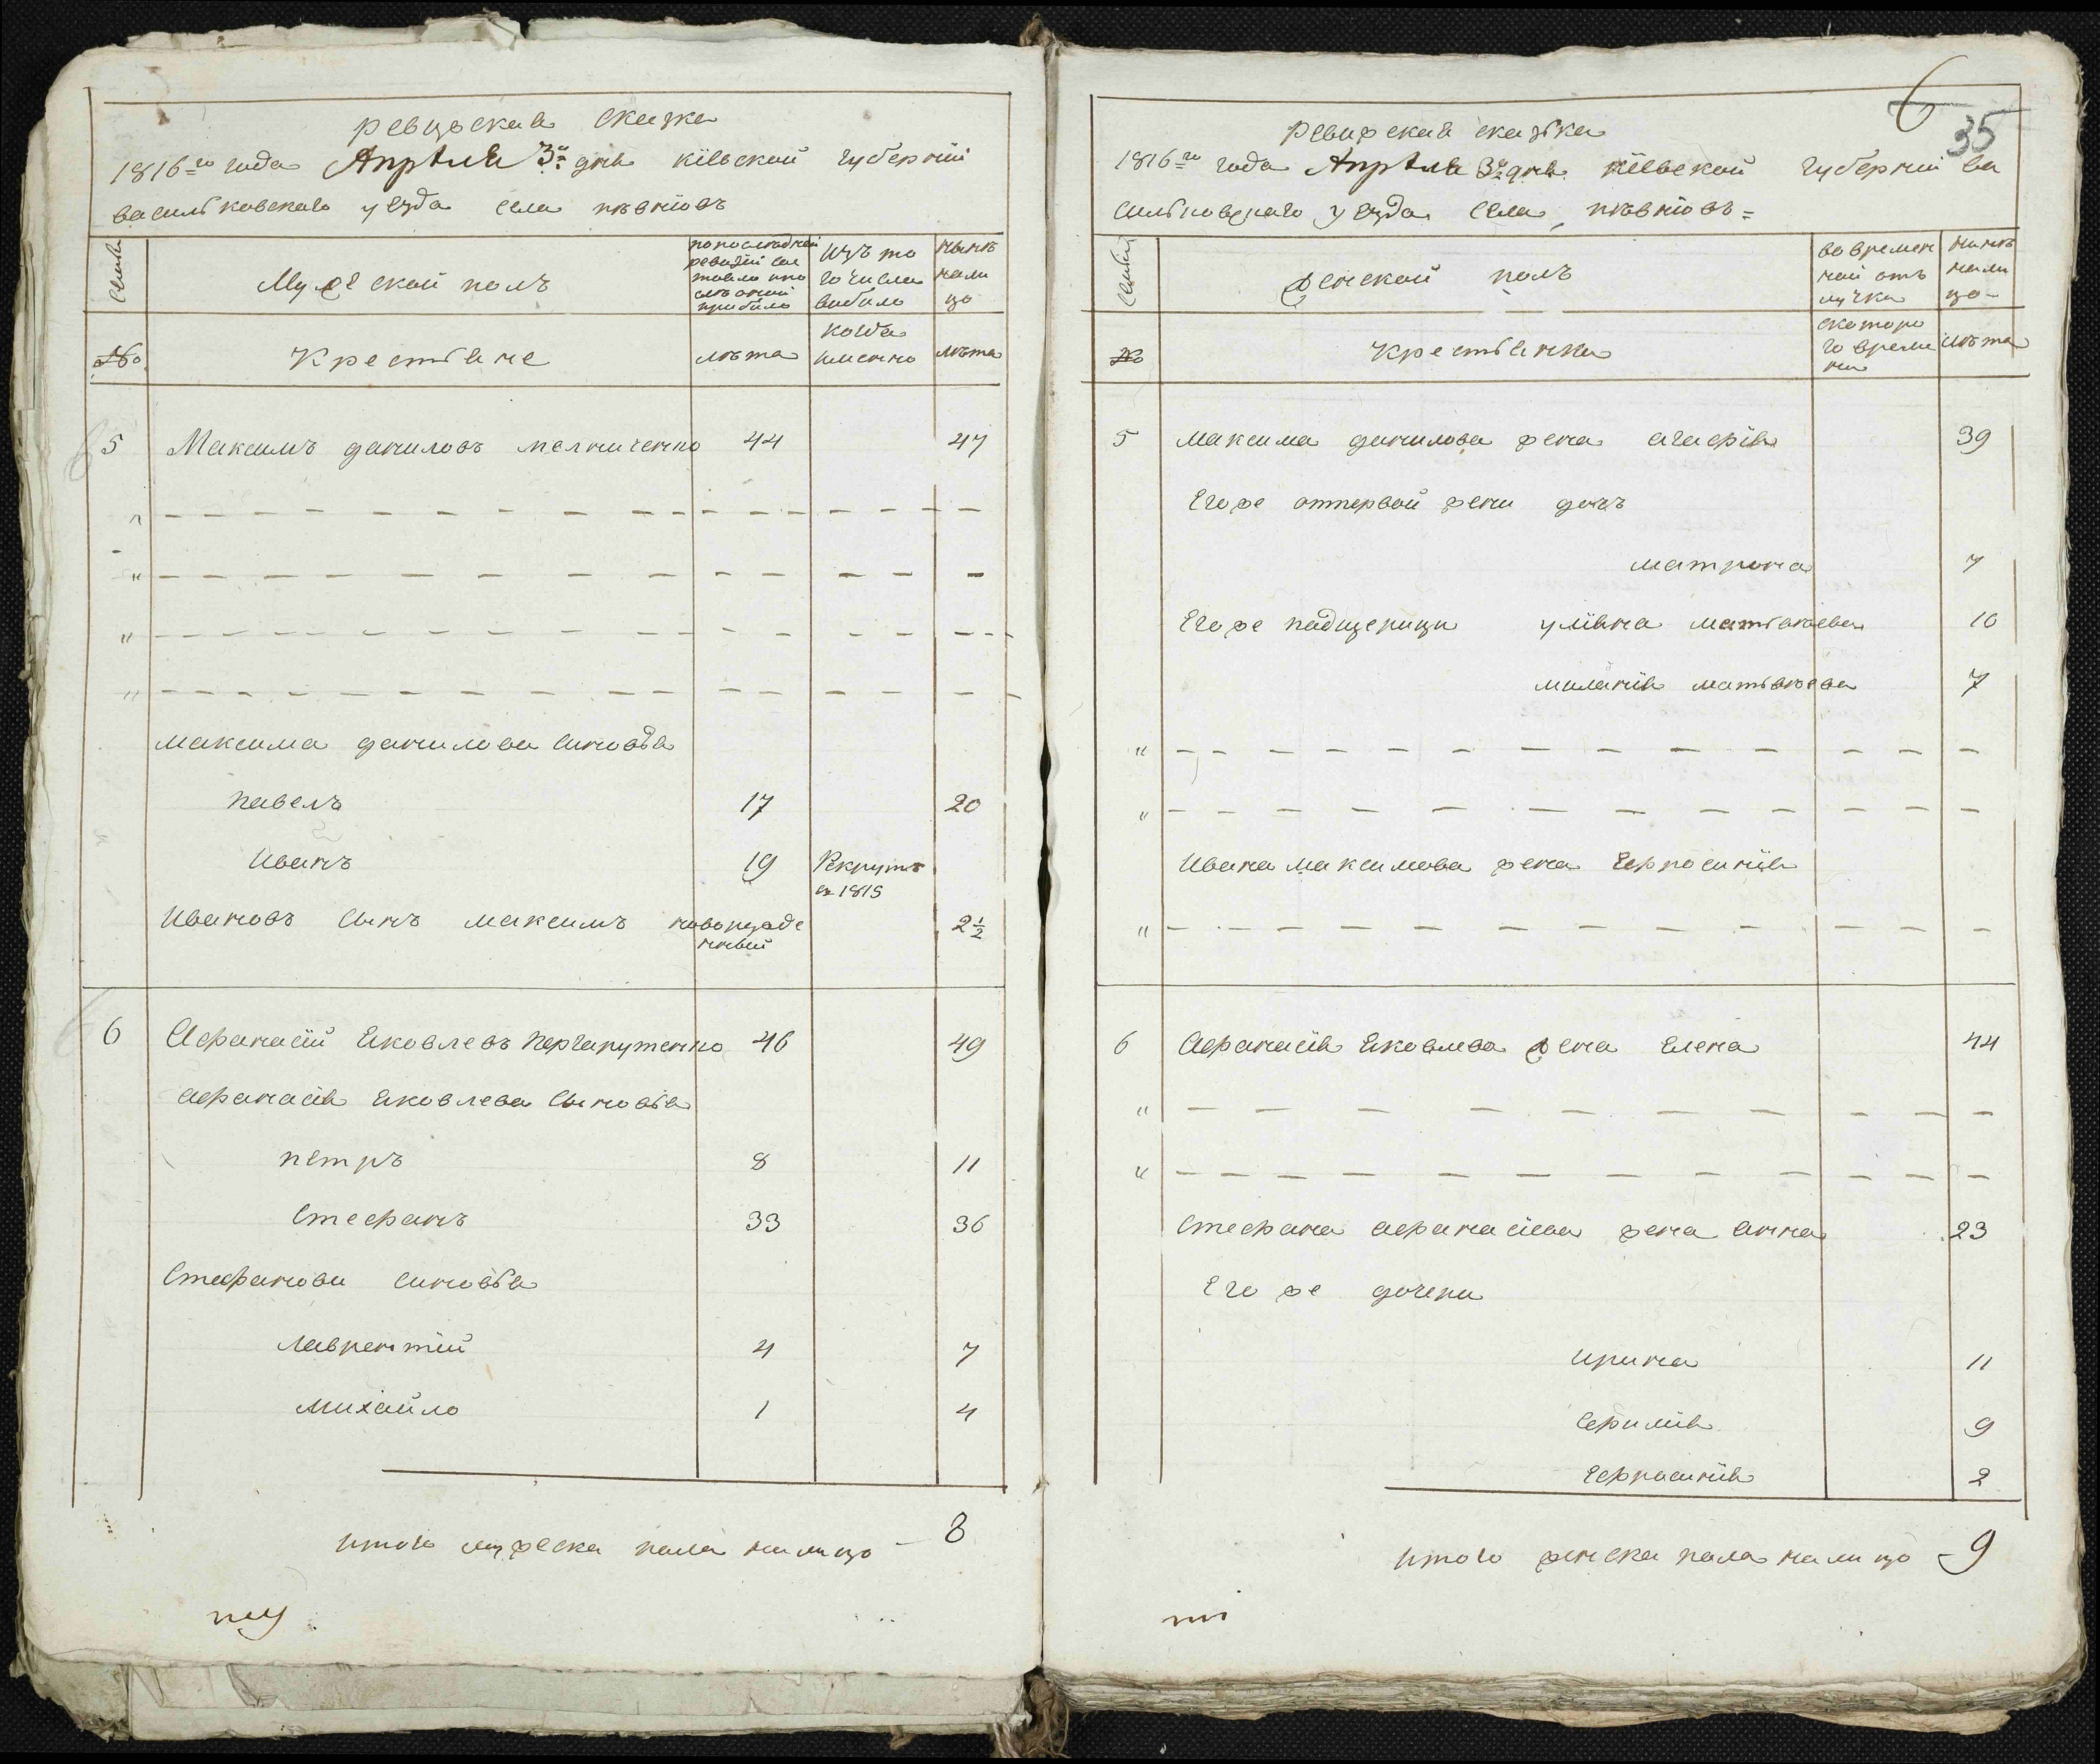 ревизская сказка
1816го года Апреля 3го дня кіевской губерніи
васильковского уезда села пѣвнювъ
семьи
Мужеской полъ
попоследней ревизіи состояло и после оной прибыло
Изъ того числа выбыло
нынѣ налицо
№
Крестьяне
лѣта
когда именно
лѣта
5 Максимъ даниловъ мелниченко 44 47
"
"
"
"
максима данилова синовья
павелъ 17 20
Иванъ 19 Рекрутъ въ 1815
Ивановъ сынъ максимъ новорожденный 2 1/2
6 Афанасій Яковлевъ 46 49
афанасія яковлева сыновья
петръ 8 11
Стефанъ 33 36
Стефанови синовья
лаврентій 4 7
михайло 1 4
итого мужеска пола налицо - 8
6
35
ревизская сказка
1816го года Апреля 3го дня кіевской губерніи ва
сильковского уезда села пѣвнювъ =
семьи
женской полъ
во временной отлучке
нынѣ налицо
№
крестьянки
скоторого времени
лѣта
5 максима данилова жена агафія 39
Егоже отпервой жени дочъ
матрона 7
Егоже падщерици уліяна матвѣева 10
миланія матвѣева 7
"
"
Ивана максимова жена Ефросинія
"
6 Афанасія яковлева жена Елена 44
"
"
Стефана афанасіева жена анна 23
Его же дочери
ирина 11
Ефимія 9
Ефросинія 2
итого женска пола налицо - 9